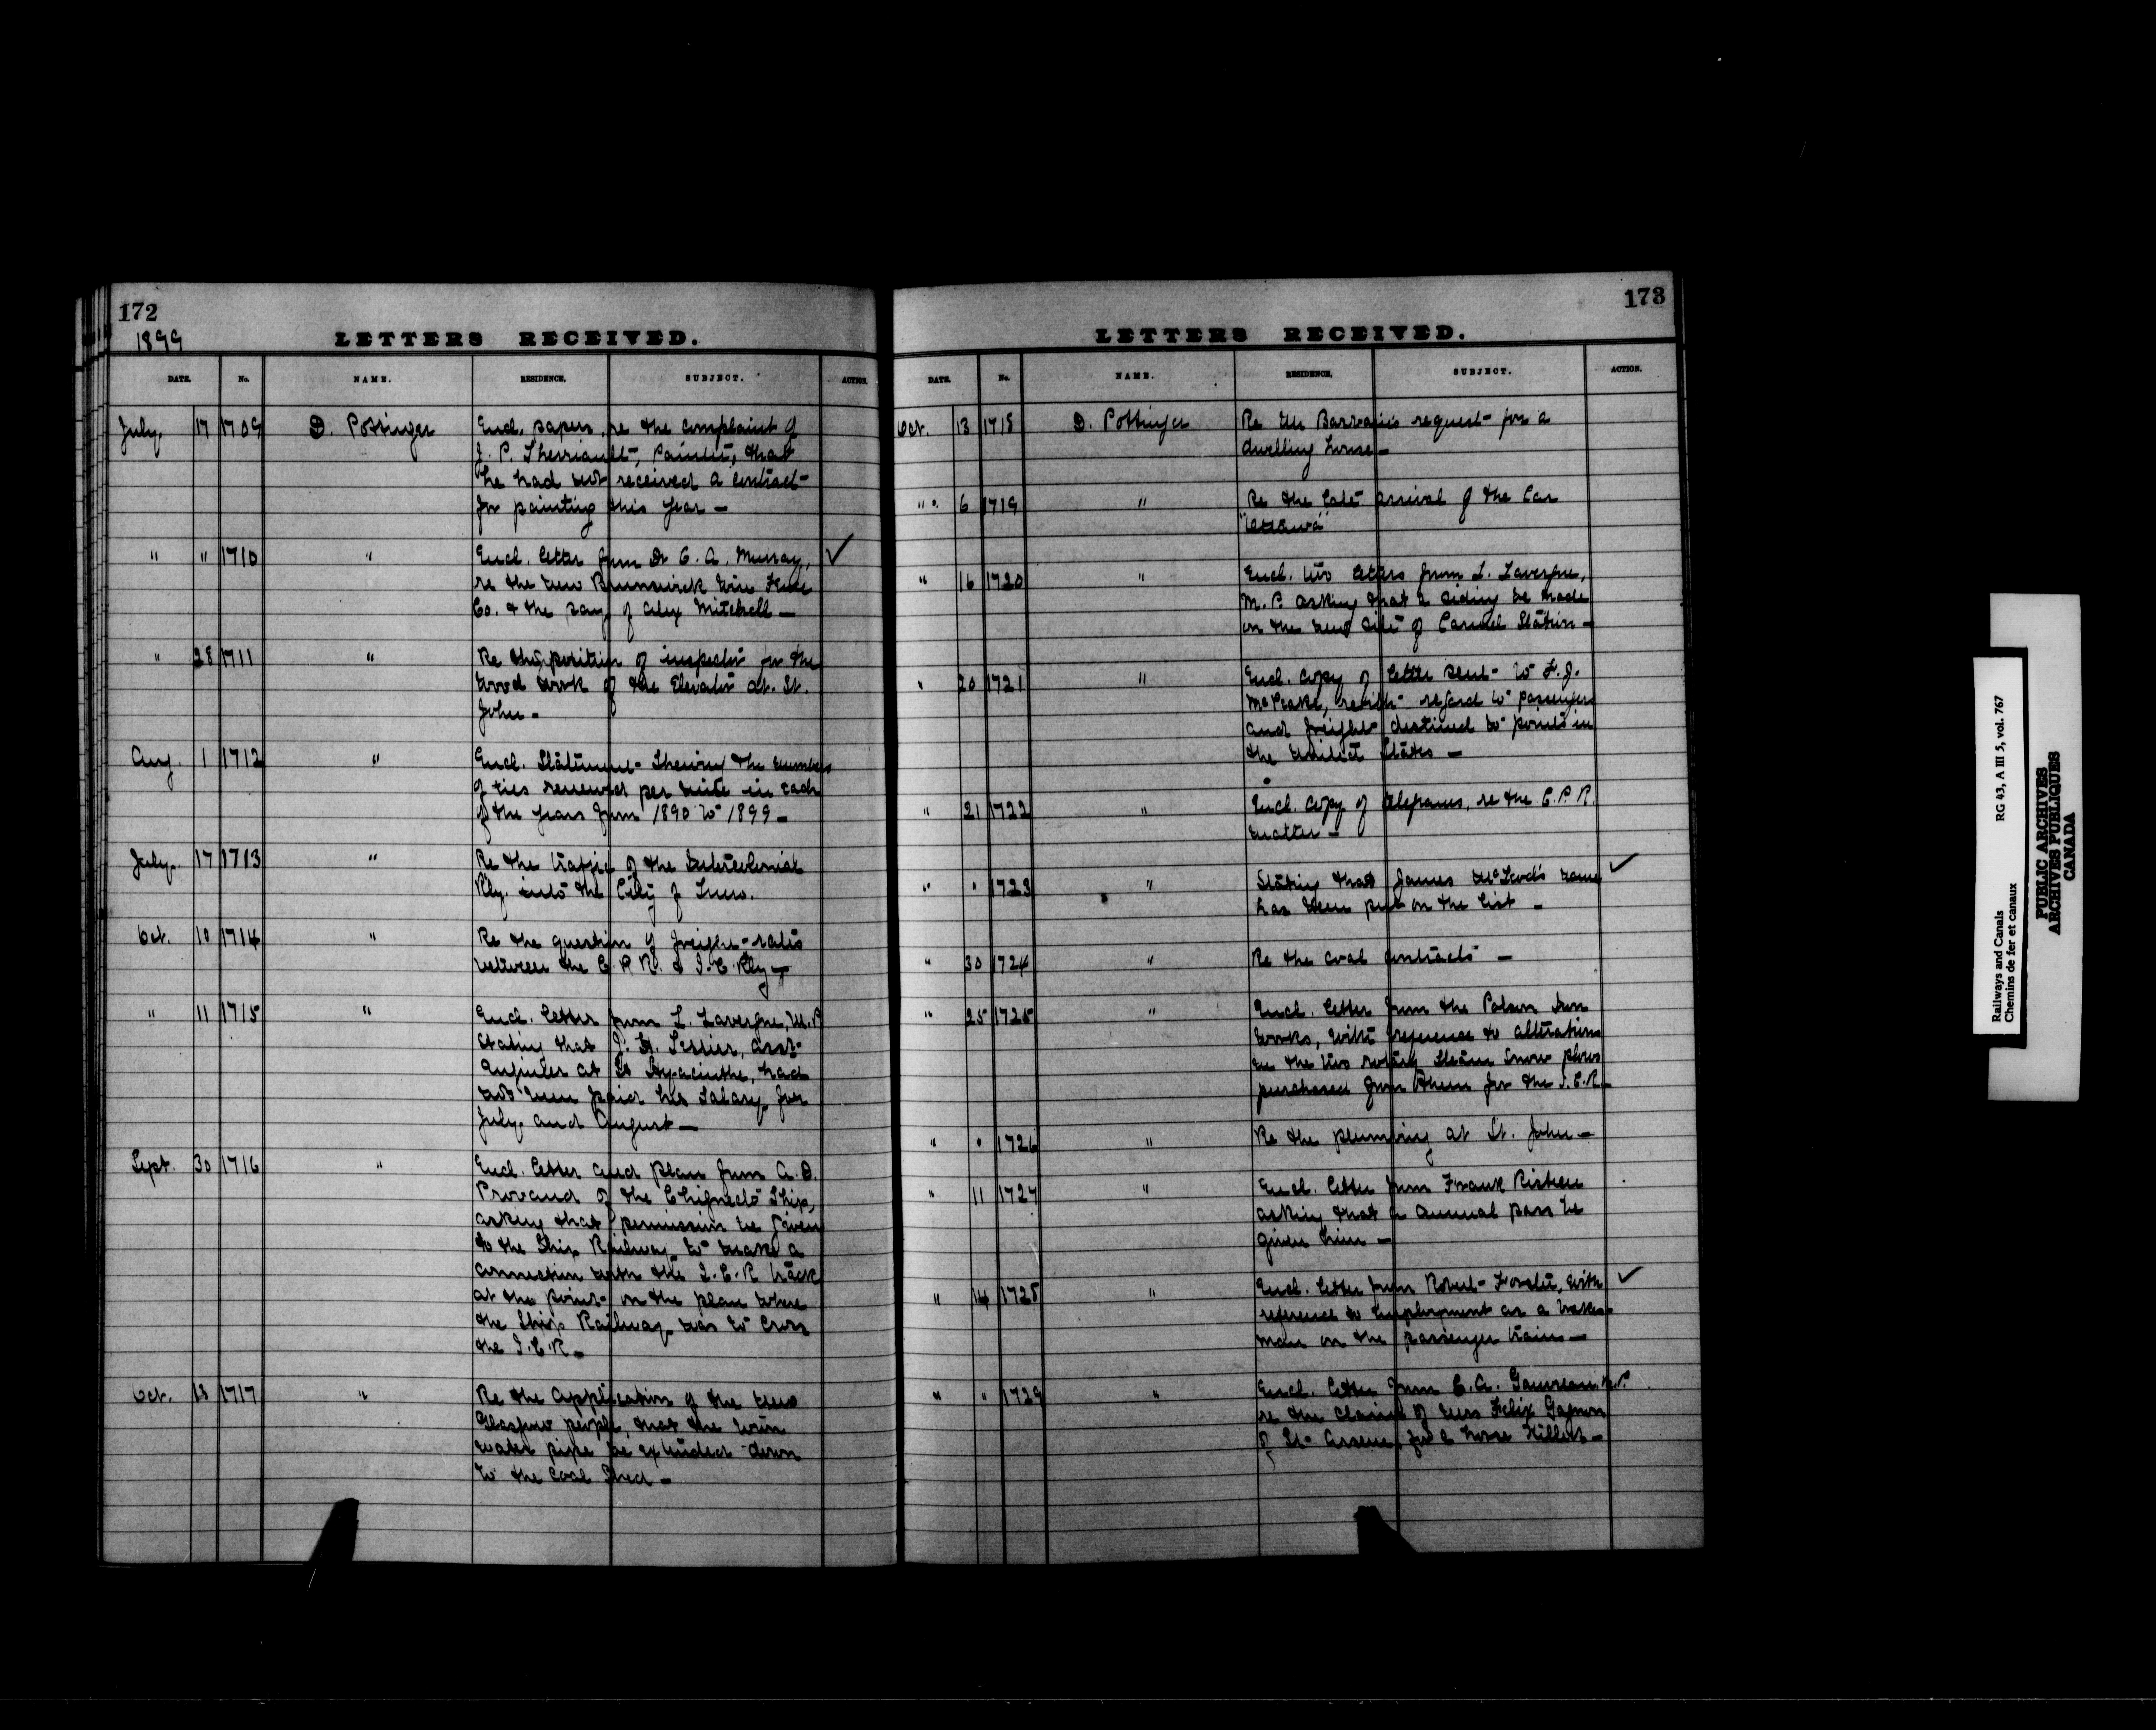 172
1899
LETTERS RECEIVED.
DATE. No. NAME. RESIDENCE. SUBJECT. ACTION.
July. 17 1709 D. Pottinger Encl. papers, re the complaint of
J. P. Therriault, Painter, that
he had not received a contract
for painting this year —
" " 1710 " Encl. letter from Dr C. A. Murray, ✓
re the New Brunswick Wire Fence
Co. & the pay of Alex Mitchell —
" 28 1711 " Re the position of inspector for the
wood work of the Elevator at St.
John —
Aug. 1 1712 " Encl. Statement Shewing the number
of ties renewed per mile in each
of the years from 1890 to 1899 —
July. 17 1713 " Re the traffic of the Intercolonial
Rly. into the City of
Oct. 10 1714 " Re the question of freight rates
between the C. P. R. & I. C. Rly —
" 11 1715 " Encl. letter from L. Lavergne, M.P.
stating that J. H. Tessier, Asst
at St Hyacinthe, had
not been paid his Salary for
July and August —
Sept. 30 1716 " Encl. letter and plan from A. D.
Provand of the Chignecto Ship,
asking that permission be given
to the Ship Railway to make a
connection with the I. C. R track
at the point on the plan where
the Ship Railway was to cross
the I. C. R —
Oct. 13 1717 " Re the application of the New
Glasgow people, that the
water pipe be extended down
to the Coal Shed —
173
LETTERS RECEIVED.
DATE. No. NAME. RESIDENCE. SUBJECT. ACTION.
Oct. 13 1718 D. Pottinger Re Mr request for a
dwelling house —
" 6 1719 " Re the late arrival of the Car
"Ottawa"
" 16 1720 " Encl. two letters from L. Lavergne,
M. P. asking that a siding be made
on the new site of Carmel Station —
" 20 1721 " Encl. copy of letter sent to F. J.
McPeake, with regard to passengers
and freight destined to points in
the United States —
" 21 1722 " Encl. copy of telegrams, re the C. P. R.
matter —
" " 1723 " Stating that James McLeod's name ✓
has been put on the list —
" 30 1724 " Re the coal contracts —
" 25 1725 " Encl. letter from the Polson Iron
Works, with reference to alterations
in the two rotary Steam Snow plows
purchased from them for the I. C. R —
" " 1726 " Re the plumbing at St. John —
" 11 1727 " Encl. letter from Frank Risteen
asking that a annual pass be
given him —
" 14 1728 " Encl. letter from Robert with ✓
reference to employment as a brakes
man on the passenger train —
" " 1729 " Encl. letter from C. A. Gauvreau M.P.
re the claim of Felix Gagnon
of St Arsene, for a horse killed —
Railways and Canals RG 43, A III 5, vol. 767
Chemins de fer et canaux
PUBLIC ARCHIVES
ARCHIVES PUBLIQUES
CANADA